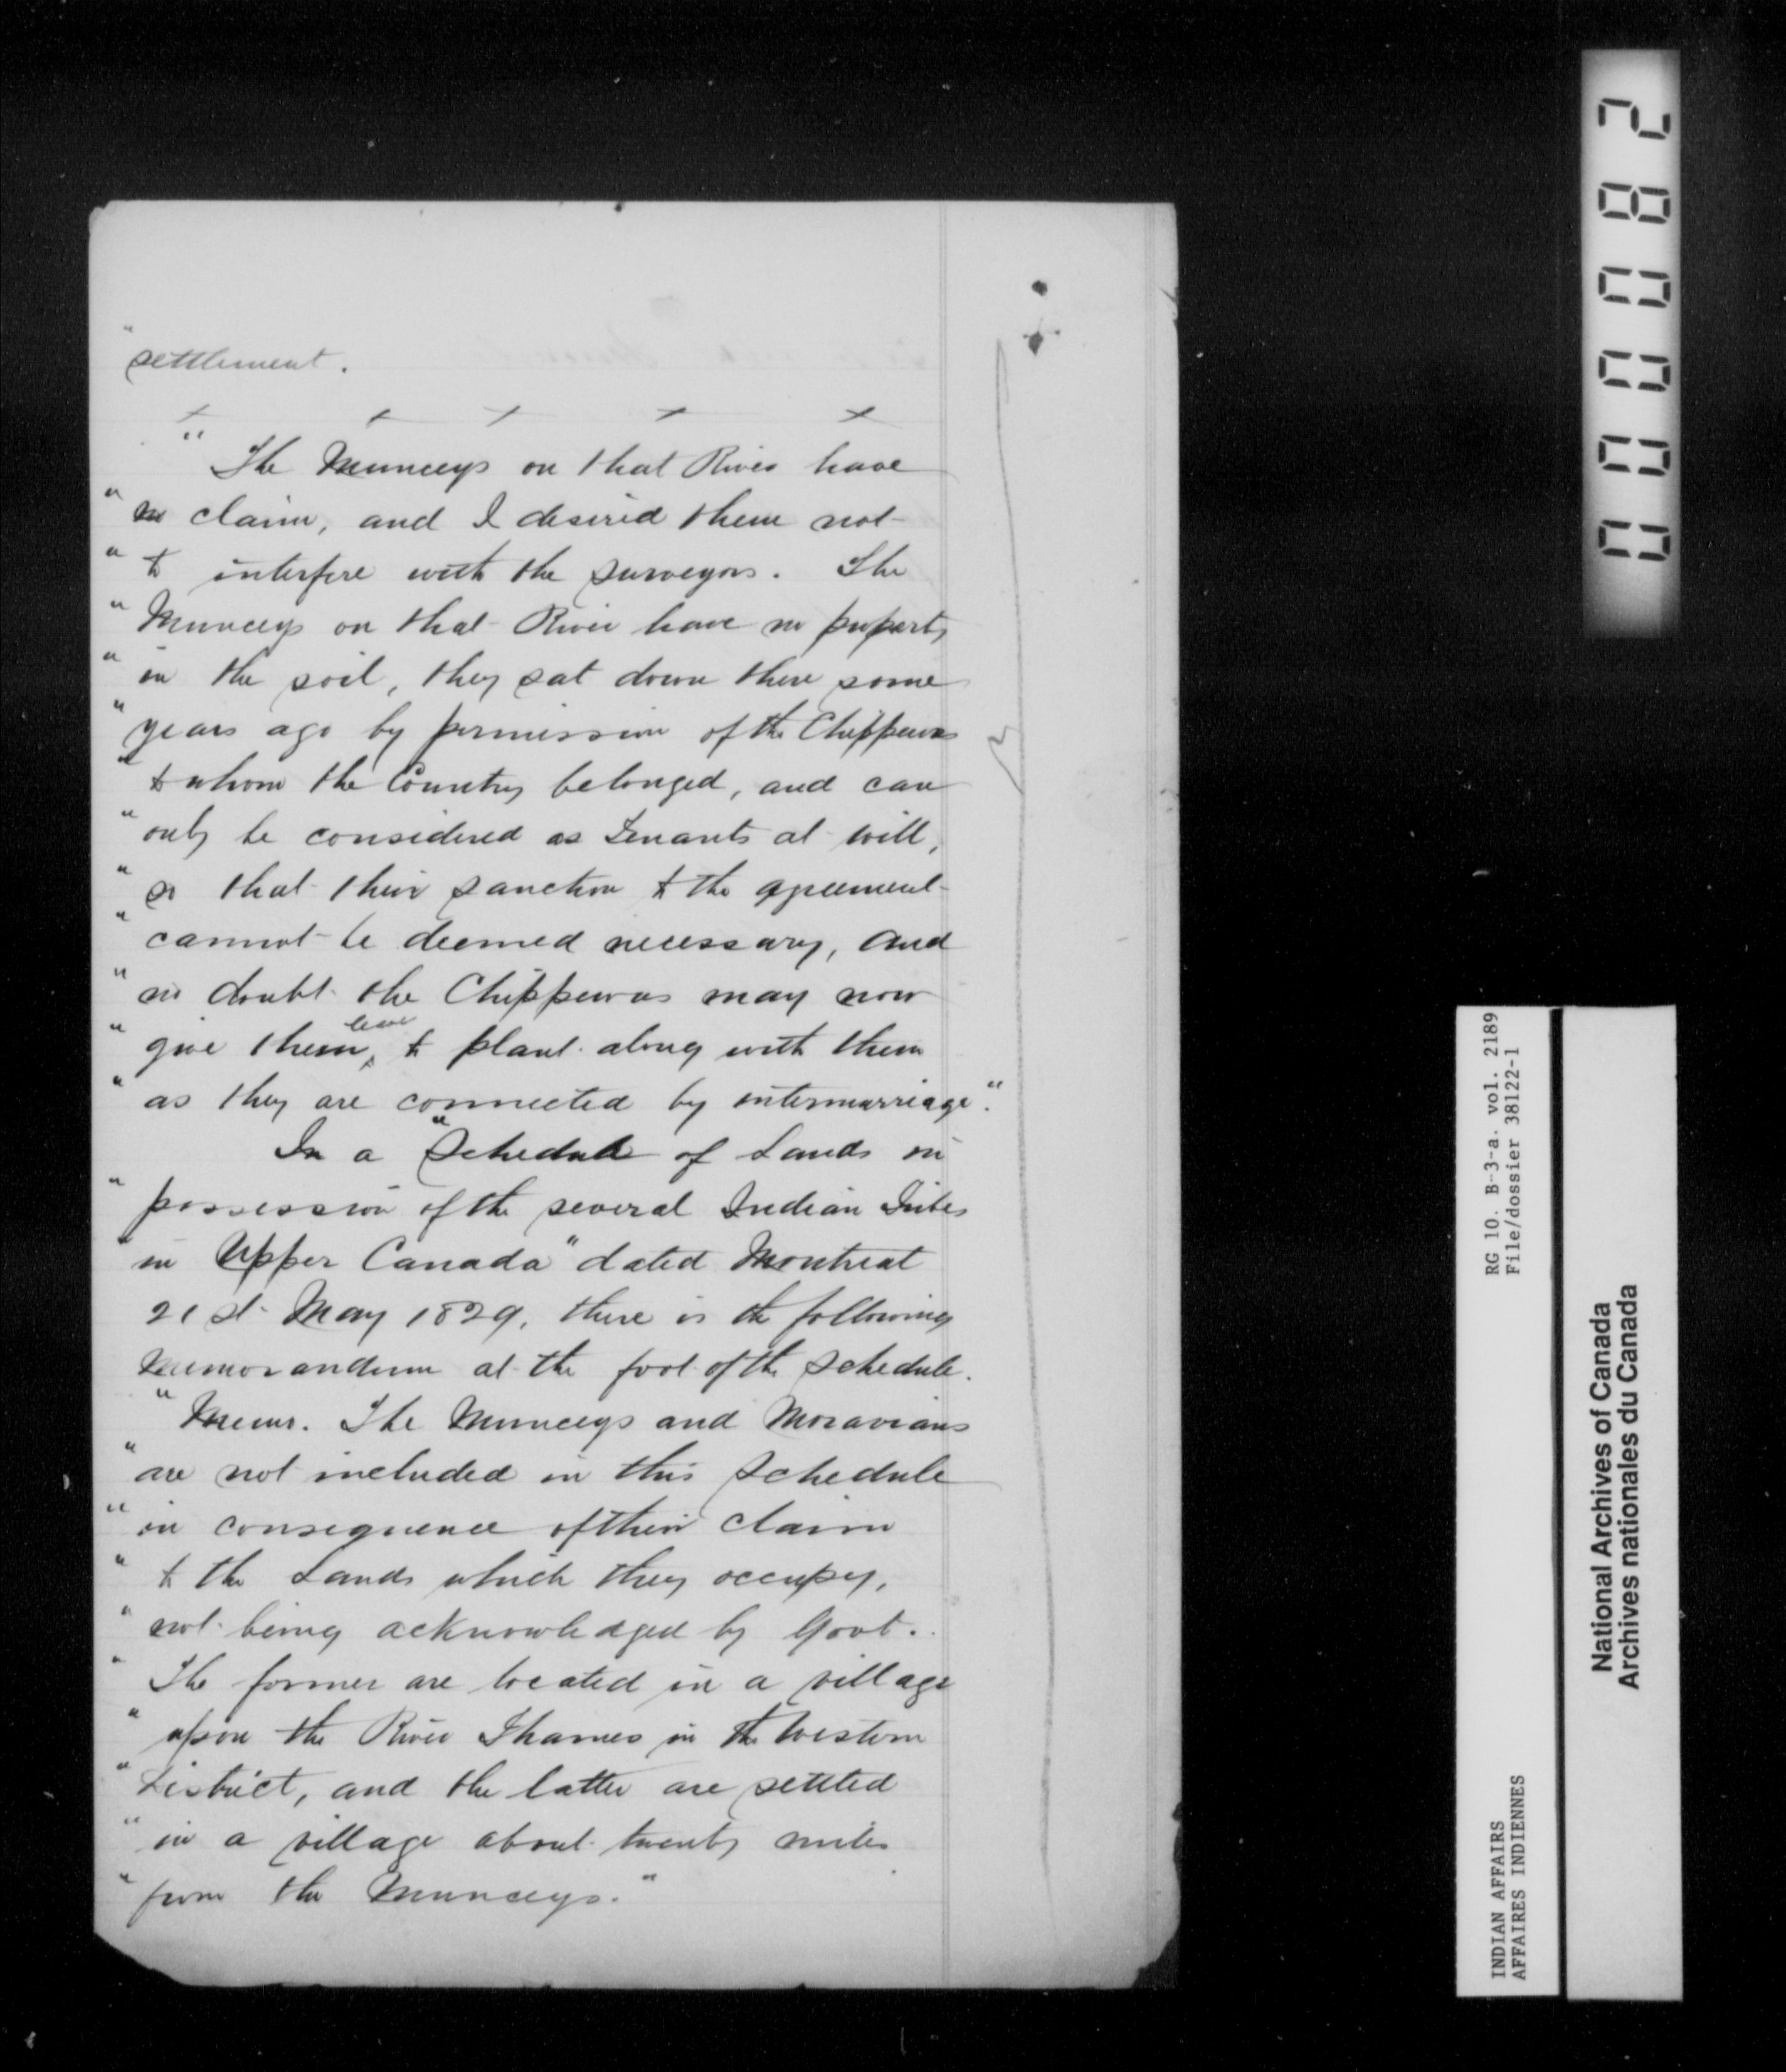 "settlement.
+ + + + +
" The Munceys on that River have
" no claim, and I desired them not
" to interfere with the surveyors. The
" Munceys on that River have no property
" in the soil, they sat down there some
" years ago by permission of the Chippewas
" to whom the Country belonged, and can
" only be considered as Tenants at will,
" so that their sanction to the agreement
" cannot be deemed necessary, and
" no doubt the Chippewas may now
" give them leave to plant along with them
" as they are connected by intermarriage."
In a "Schedule of Lands in
" possession of the several Indian Tribes
" in Upper Canada" dated Montreal
21st May 1829, there is the following
memorandum at the foot of the Schedule.
" Mem. The Munceys and Moravians
" are not included in this Schedule
" in consequence of their claim
" to the Lands which they occupy,
" not being acknowledged by Govt.
" The former are located in a village
" upon the River Thames in the Western
" District, and the latter are settled
" in a village about twenty miles
" from the Munceys."
000082
RG 10. B-3-a. vol. 2189
File/dossier 38122-1
INDIAN AFFAIRS
AFFAIRES INDIENNES
National Archives of Canada
Archives nationales du Canada